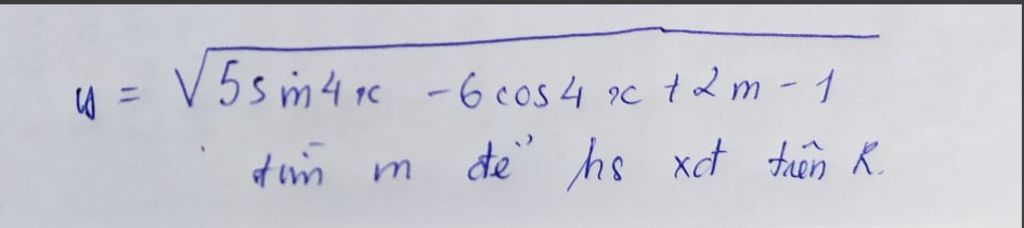 y = √5sin4x - 6cos4x + 2m - 1
tìm m để hs xđ trên R.